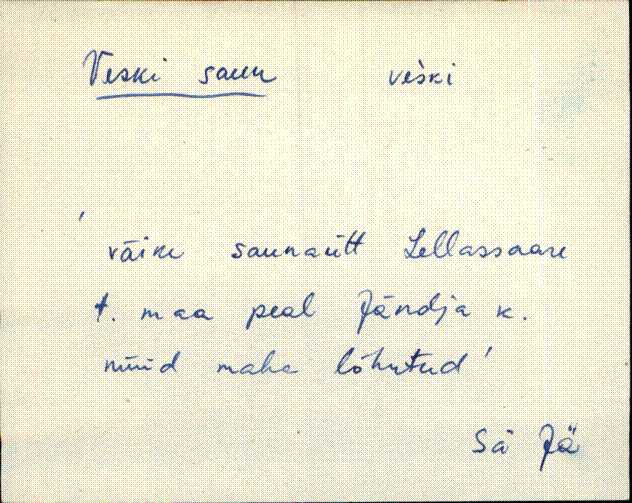 Veski saun veski
' väike saunaütt Lellassaare
t. maa peal Jändja k.
nüüd maha lõhutud '
Sä Jä